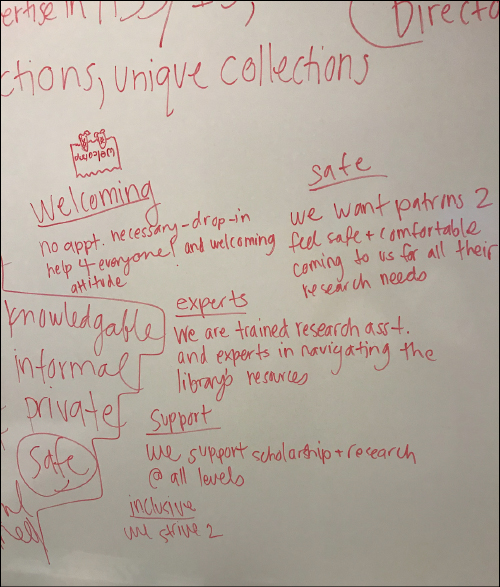 ertise in
Directo
ctions, unique collections
Welcoming
Welcoming
no appt. necessary-drop-in
help 4 everyone! and welcoming
attitude
safe
we want patrons 2
feel safe + comfortable
coming to us for all their
research needs
knowledgable
informal
private
safe
experts
we are trained research asst.
and experts in navigating the
library's resources
support
we support scholarship + research
@ all levels
inclusive
we strive 2